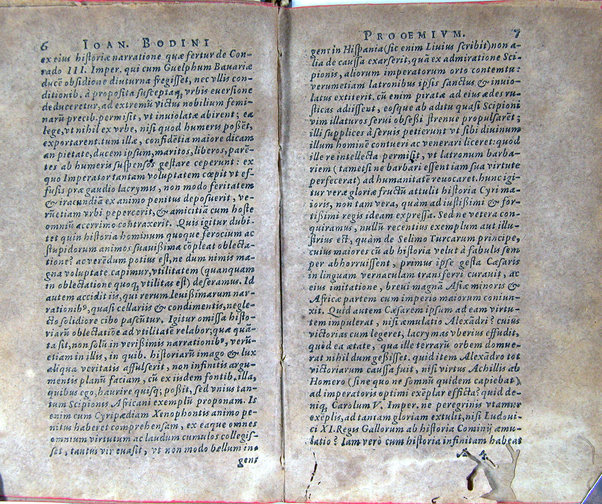 6 IOAN. BODINI
ex eius historiæ narratione quæ fertur de Con-
rado III. Imper. qui cum Guelphum Bauariæ
ducē obsidione diuturna fregisset, nec vllis con-
ditionib. à proposita susceptaq́, vrbis euersione
deduceretur, ad extremū victus nobilium femi-
narū precib. permisit, vt inuiolatæ abirent; ea
lege, vt nihil ex vrbe, nisi quod humeris possēt,
exportarent. tum illæ, confidētia maiore dicam
an pietate, ducem ipsum, maritos, liberos, parē-
tes ab humeris suspensos gestare ceperunt: ex
quo Imperator tantam voluptatem cœpit vt ef-
fusis præ gaudio lacrymis, non modo feritatem
& iracundiā ex animo penitus deposuerit, ve-
rūetiam vrbi pepercerit, & amicitiā cum hoste
omniū acerrimo contraxerit. Quis igitur dubi-
tet quin historia hominum quoque ferocium ac
stupidorum animos suauissima cōpleat oblecta-
tione? ac verendum potius est, ne dum nimis ma-
gna voluptate capimur, vtilitatem (quanquam
in oblectatione quoq, vtilitas est) deseramus. Id
autem accidit iis, qui rerum leuissimarum nar-
rationibᵘ, quasi cellariis & condimentis, negle-
cto solidiore cibo pascūtur. Igitur omissa histo-
riarū oblectatiōe ad vtilitatē relabor, qua quā-
ta sit, non solū in verissimis narrationibᵘ, verū-
etiam in illis, in quib. historiarū imago & lux
aliqua veritatis assulserit, non infinitis argu-
mentis planū faciam, cū ex iisdem fontib. illa,
quibus ego, haurire quisq; possit, sed vnius tan-
tum Scipionis Africani exemplū proponam. Is
enim cum Cyripædiam Xenophontis animo pe-
nitus haberet comprehensam, ex eaque omnes
omnium virtutum ac laudum cumulos collegis-
set, tantus vir euasit, vt non modo bellum in-
gens
PROOEMIVM. 7
gens in Hispania (sic enim Liuius scribit) non a-
lia de caussa exarserit, quā ex admiratione Sci-
pionis, aliorum imperatorum orto contemtu:
verumetiam latronibus ipsis sanctus & inuio-
latus extiterit. cū enim piratæ ad eius ædes ru-
sticas adiissent, eosque ab aditu quasi Scipioni
vim illaturos serui obsessi strenue propulsarēt;
illi supplices à seruis petierunt vt sibi diuinum
illum hominē contueri ac venerari liceret: quod
ille re intellecta permisit, vt latronum barba-
riem (tametsi ne barbari essent iam sua virtute
perfecerat) ad humanitatē reuocaret. hunc igi-
tur veræ gloriæ fructū attulit historia Cyri ma-
ioris, non tam vera, quàm ad iustissimi & for-
tissimi regis ideam expressa. Sed ne vetera con-
quiramus, nullū recentius exemplum aut illu-
strius est, quàm de Selimo Turcarum principe,
cuius maiores cū ab historia velut à fabulis sem-
per abhorruissent, primus ipse gesta Cæsaris
in linguam vernaculam transferri curauit, ac
eius imitatione, breui magnā Asiæ minoris &
Africæ partem cum imperio maiorum coniun-
xit. Quid autem Cæsarem ipsum ad eam virtu-
tem impulerat, nisi æmulatio Alexādri? cuius
victorias cum legeret, lacrymas vberius effudit,
quòd ea ætate, qua ille terarū orbem domue-
rat nihil dum gessisset. quid item Alexādro tot
victoriarum caussa fuit, nisi virtus Achillis ab
Homero (sine quo ne somnū quidem capiebat)
ad imperatoris optimi exēplar efficta? quid de-
niq; Carolum V. Imper. ne peregrinis vtamur
exēplis, ad tantam gloriam extulit, nisi Ludoui-
ci XI. Regis Gallorum ab historia Cominij æmu-
latio? Iam verò cum historia infinitam habeat